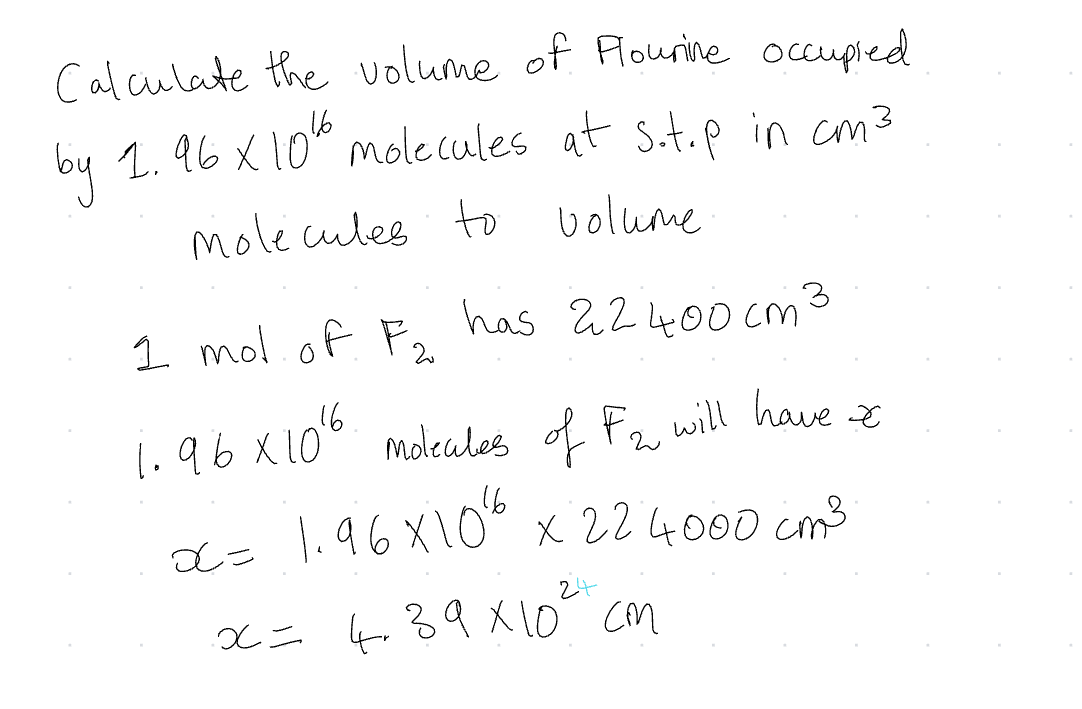 Calculate the volume of Flourine occupied
by 1.96 X 10¹⁶ molecules at s.t.p in cm³
molecules to volume
1 mol of F₂ has 22400 cm³
1.96 X 10¹⁶ molecules of F₂ will have x
x = 1.96 X 10¹⁶ x 224000 cm³
x = 4.39 X 10²⁴ cm